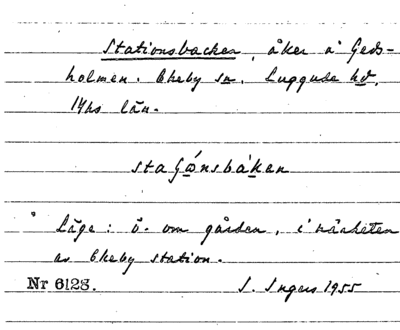 Stationsbacken, åker å Geds-
holmen. Ekeby sn. Luggude hd.
Mhs län.
staGωnsbàkan
Läge: ö. om gården, i närheten
av Ekeby station.
Nr 6123. I. Ingers 1955